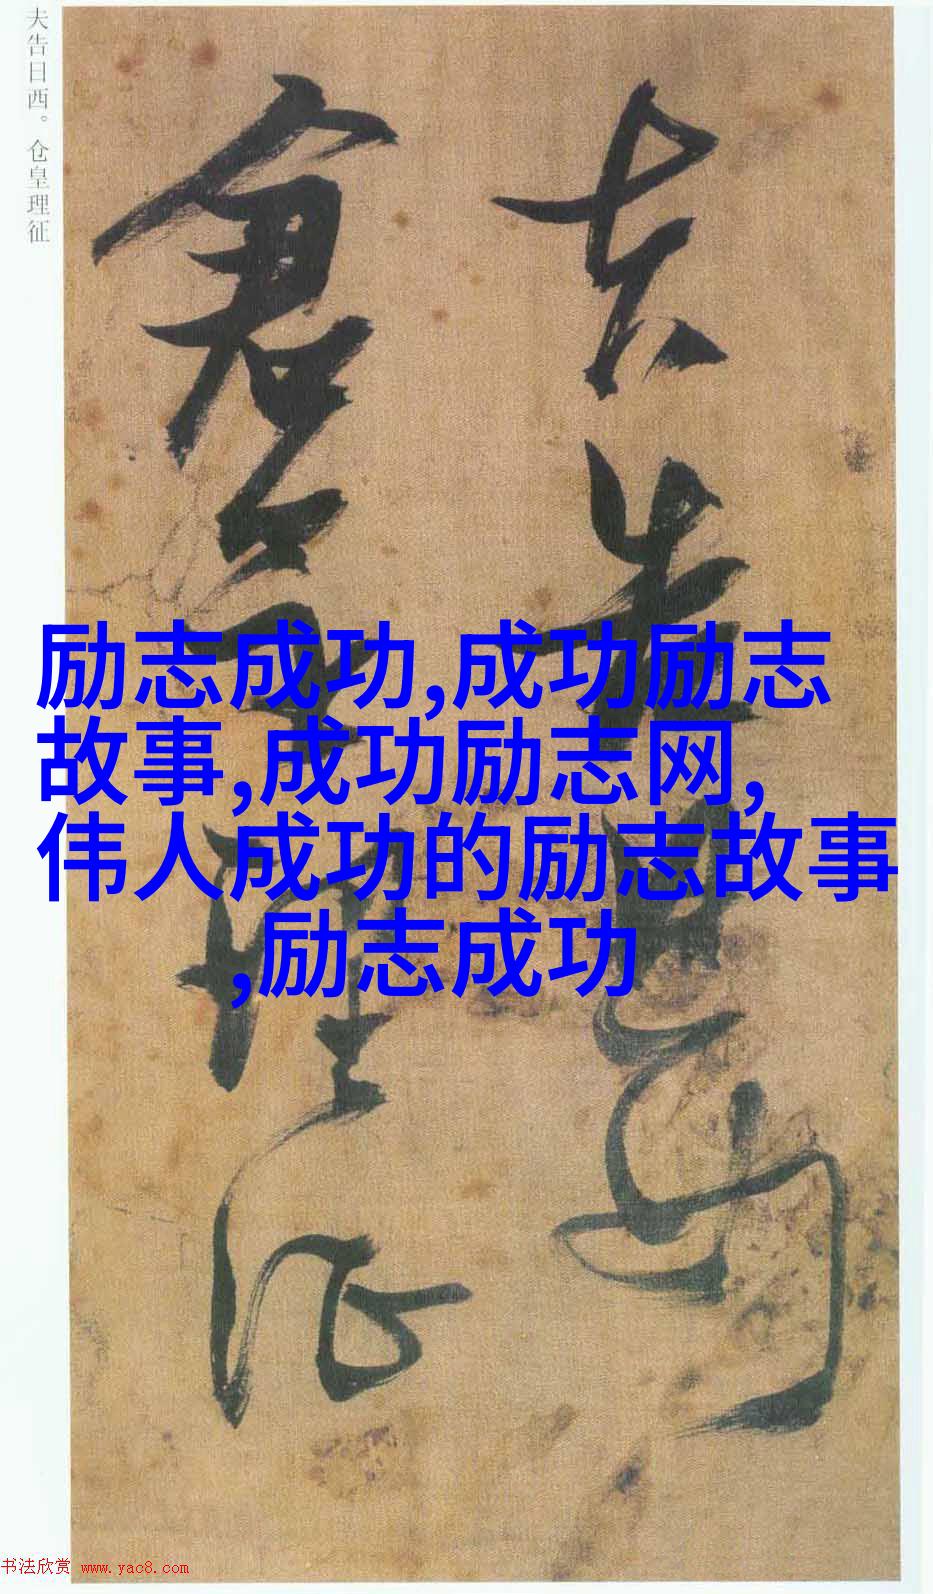 夫告日西。仓皇理征
夫告日西
仓皇理征
励志成功,成功励志
故事,成功励志网,
伟人成功的励志故事
,励志成功
书法欣赏 www.yac8.com